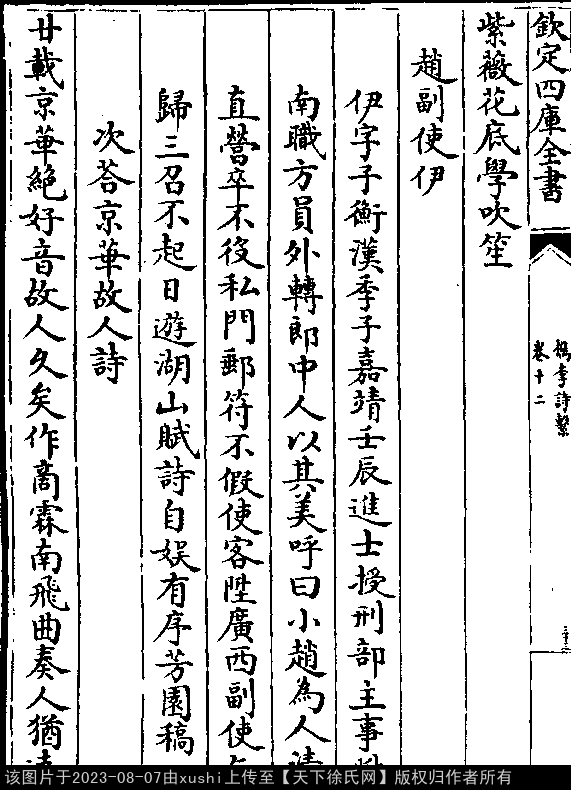 欽定四庫全書
檇李詩繫
卷十二
紫薇花底學吹笙
趙副使伊
伊字子衡漢季子嘉靖壬辰進士授刑部主事
南職方員外轉郎中人以其美呼曰小趙為人清
直營卒不役私門郵符不假使客陞廣西副使
歸三召不起日遊湖山賦詩自娱有序芳園稿
次荅京華故人詩
廿載京華絶好音故人久矣作商霖南飛曲奏人猶
该图片于2023-08-07由xushi上传至【天下徐氏网】版权归作者所有